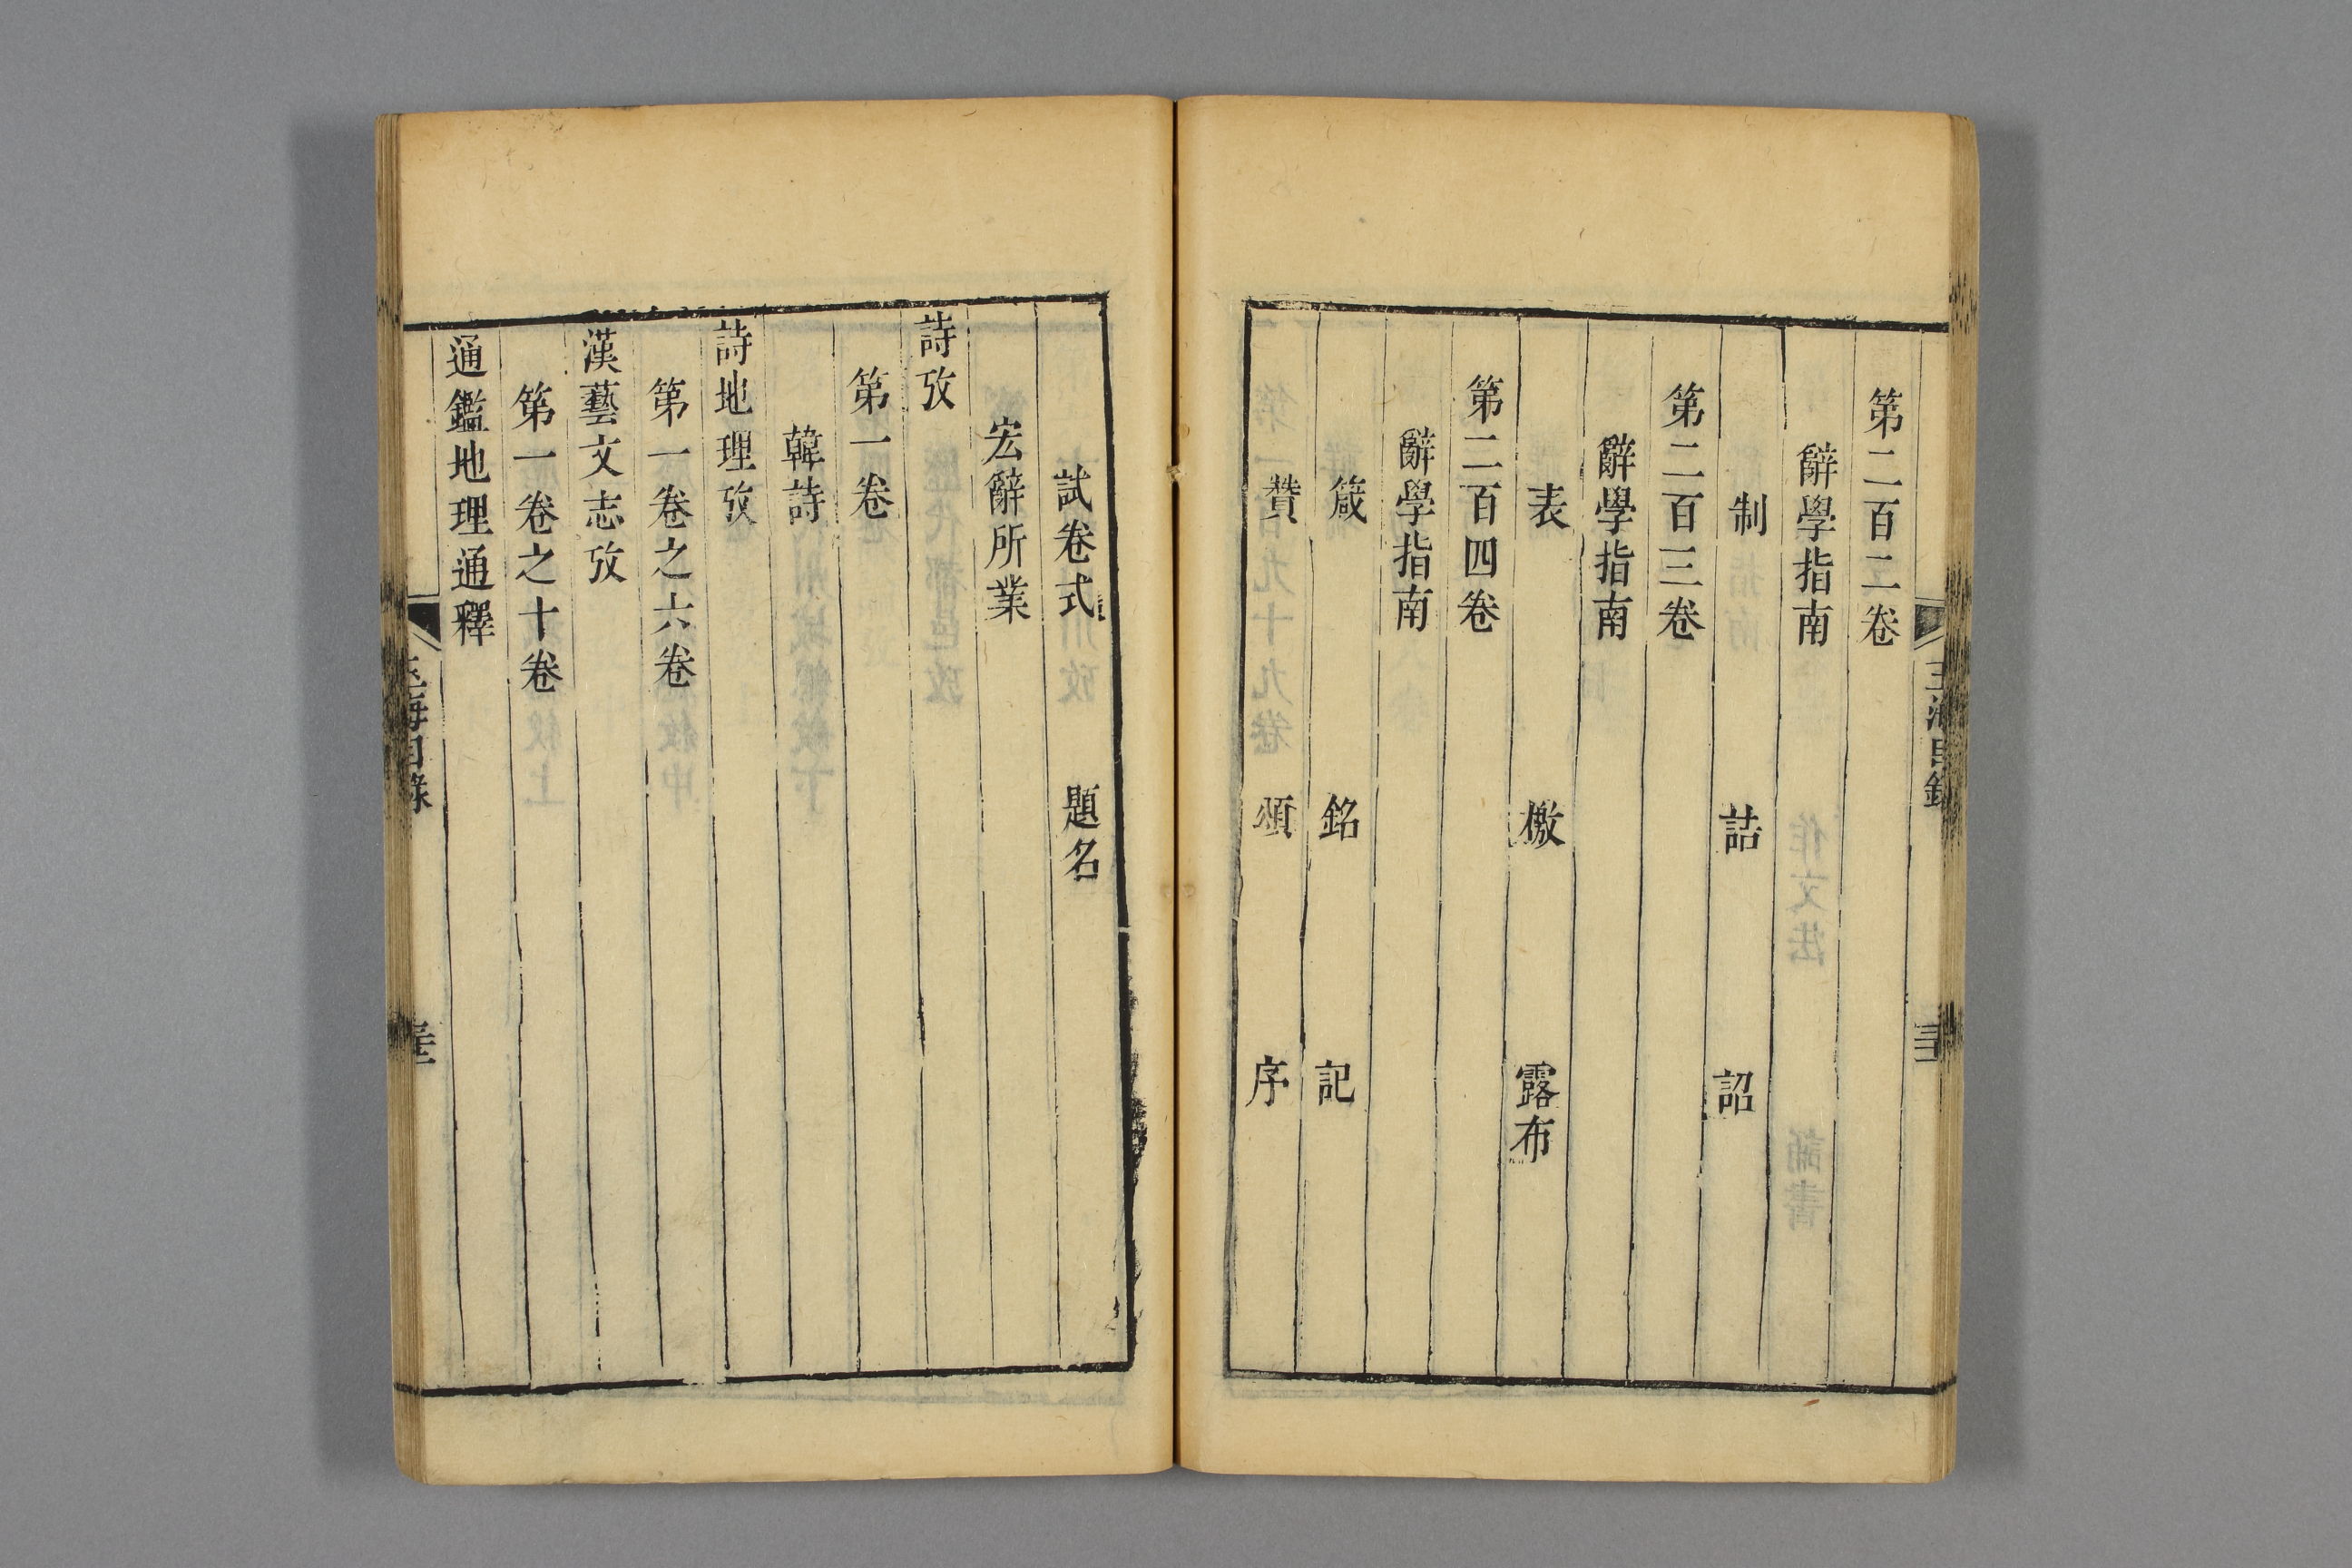 第二百二卷
辭學指南
制 誥 詔
第二百三卷
辭學指南
表 檄 露布
第二百四卷
辭學指南
箴 銘 記
贊 頌 序
試卷式 題名
宏辭所業
詩攷
第一卷
韓詩
詩地理攷
第一卷之六卷
漢藝文志攷
第一卷之十卷
通鑑地理通釋
玉海目錄